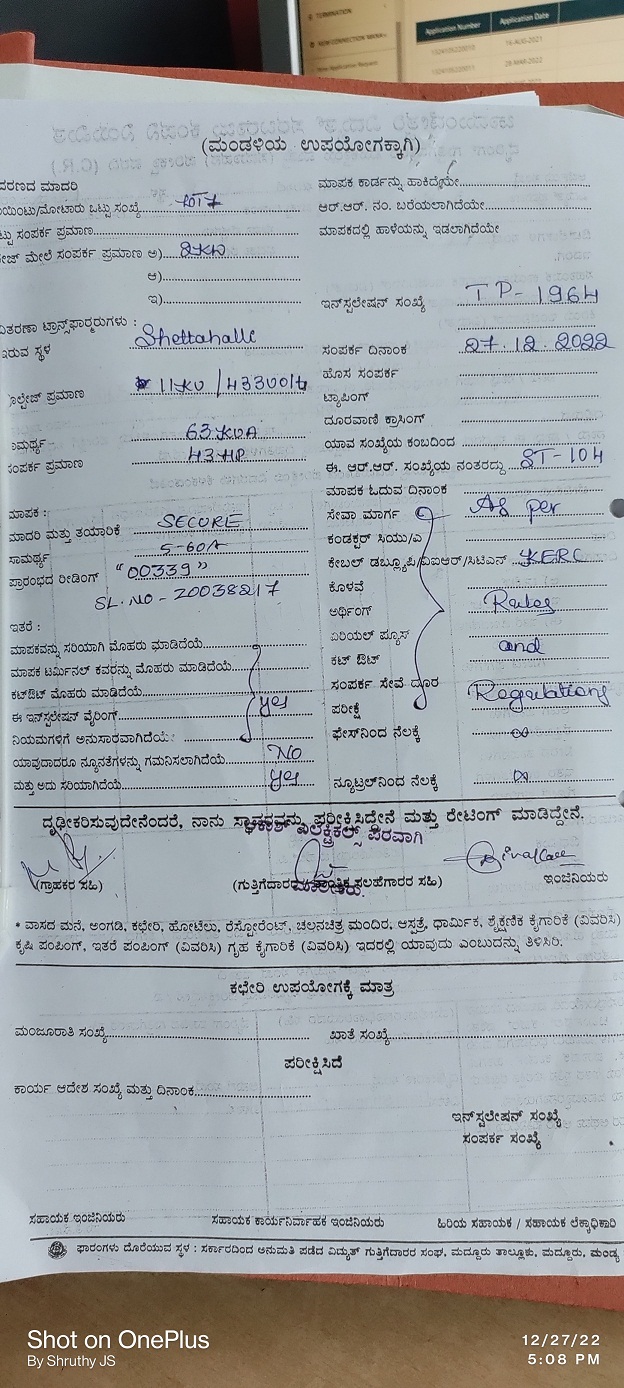 TERMINATION
Application Number Application Date
(ಮಂಡಳಿಯ ಉಪಯೋಗಕ್ಕಾಗಿ)
ಮಾದರಿ
ಮಾಪಕ ಕಾರ್ಡನ್ನು ಹಾಕಿದೆಯೇ
ಒಟ್ಟು ಸಂಖ್ಯೆ
ಆರ್.ಆರ್. ನಂ. ಬರೆಯಲಾಗಿದೆಯೇ
ಸಂಪರ್ಕ ಪ್ರಮಾಣ
ಮಾಪಕದಲ್ಲಿ ಹಾಳೆಯನ್ನು ಇಡಲಾಗಿದೆಯೇ
ಮೇಲೆ ಸಂಪರ್ಕ ಪ್ರಮಾಣ ಅ) 2KW
ಆ)
ಇ)
ಇನ್‌ಸ್ಟಲೇಷನ್ ಸಂಖ್ಯೆ TP-1964
ಟ್ರಾನ್ಸ್‌ಫಾರ್ಮರುಗಳು :
ಇರುವ ಸ್ಥಳ Shettahalli
ಸಂಪರ್ಕ ದಿನಾಂಕ 27.12.2022
ಹೊಸ ಸಂಪರ್ಕ
ಪ್ರಮಾಣ 11KV /433Volt
ಟ್ಯಾಪಿಂಗ್
ದೂರವಾಣಿ ಕ್ರಾಸಿಂಗ್
63KVA
ಯಾವ ಸಂಖ್ಯೆಯ ಕಂಬದಿಂದ
ಸಂಪರ್ಕ ಪ್ರಮಾಣ 43HP
ಈ. ಆರ್.ಆರ್. ಸಂಖ್ಯೆಯ ನಂತರದ್ದು ST-104
ಮಾಪಕ ಓದುವ ದಿನಾಂಕ
ಮಾಪಕ :
ಮಾದರಿ ಮತ್ತು ತಯಾರಿಕೆ SECURE
ಸೇವಾ ಮಾರ್ಗ As per
ಸಾಮರ್ಥ್ಯ 5-60A
ಕಂಡಕ್ಟರ್ ಸಿಯು/ಎ
ಪ್ರಾರಂಭದ ರೀಡಿಂಗ್ "00339"
ಕೇಬಲ್ ಡಬ್ಲ್ಯೂಪಿ/ವಿಐಆರ್/ಸಿಟಿಎನ್ KERC
SL.NO - 20038217
ಕೊಳವೆ
ಅರ್ಥಿಂಗ್ Rules
ಇತರೆ :
ಏರಿಯಲ್ ಫ್ಯೂಸ್
ಮಾಪಕವನ್ನು ಸರಿಯಾಗಿ ಮೊಹರು ಮಾಡಿದೆಯೆ
ಕಟ್ ಔಟ್ and
ಮಾಪಕ ಟರ್ಮಿನಲ್ ಕವರನ್ನು ಮೊಹರು ಮಾಡಿದೆಯೆ
ಸಂಪರ್ಕ ಸೇವೆ ದೂರ
ಕಟ್‌ಔಟ್ ಮೊಹರು ಮಾಡಿದೆಯೆ
ಪರೀಕ್ಷೆ Regulations
ಈ ಇನ್‌ಸ್ಟಲೇಷನ್ ವೈರಿಂಗ್ yes
ಫೇಸ್‌ನಿಂದ ನೆಲಕ್ಕೆ ∞
ನಿಯಮಗಳಿಗೆ ಅನುಸಾರವಾಗಿದೆಯೆ
ಯಾವುದಾದರೂ ನ್ಯೂನತೆಗಳನ್ನು ಗಮನಿಸಲಾಗಿದೆಯೆ No
ಮತ್ತು ಅದು ಸರಿಯಾಗಿದೆಯೆ yes
ನ್ಯೂಟ್ರಲ್‌ನಿಂದ ನೆಲಕ್ಕೆ ∞
ದೃಢೀಕರಿಸುವುದೇನೆಂದರೆ, ನಾನು ಸ್ಥಾವರವನ್ನು ಪರೀಕ್ಷಿಸಿದ್ದೇನೆ ಮತ್ತು ರೇಟಿಂಗ್ ಮಾಡಿದ್ದೇನೆ.
ಎಲೆಕ್ಟ್ರಿಕಲ್ಸ್ ಪರವಾಗಿ
(ಗ್ರಾಹಕರ ಸಹಿ) (ಗುತ್ತಿಗೆದಾರರ ಸಲಹೆಗಾರರ ಸಹಿ) ಇಂಜಿನಿಯರು
ಮಾಲೀಕರು
* ವಾಸದ ಮನೆ, ಅಂಗಡಿ, ಕಛೇರಿ, ಹೋಟೆಲು, ರೆಸ್ಟೋರೆಂಟ್, ಚಲನಚಿತ್ರ ಮಂದಿರ, ಆಸ್ಪತ್ರೆ, ಧಾರ್ಮಿಕ, ಶೈಕ್ಷಣಿಕ ಕೈಗಾರಿಕೆ (ವಿವರಿಸಿ)
ಕೃಷಿ ಪಂಪಿಂಗ್, ಇತರೆ ಪಂಪಿಂಗ್ (ವಿವರಿಸಿ) ಗೃಹ ಕೈಗಾರಿಕೆ (ವಿವರಿಸಿ) ಇದರಲ್ಲಿ ಯಾವುದು ಎಂಬುದನ್ನು ತಿಳಿಸಿರಿ.
ಕಛೇರಿ ಉಪಯೋಗಕ್ಕೆ ಮಾತ್ರ
ಮಂಜೂರಾತಿ ಸಂಖ್ಯೆ ಖಾತೆ ಸಂಖ್ಯೆ
ಪರೀಕ್ಷಿಸಿದೆ
ಕಾರ್ಯ ಆದೇಶ ಸಂಖ್ಯೆ ಮತ್ತು ದಿನಾಂಕ
ಇನ್‌ಸ್ಟಲೇಷನ್ ಸಂಖ್ಯೆ
ಸಂಪರ್ಕ ಸಂಖ್ಯೆ
ಸಹಾಯಕ ಇಂಜಿನಿಯರು ಸಹಾಯಕ ಕಾರ್ಯನಿರ್ವಾಹಕ ಇಂಜಿನಿಯರು ಹಿರಿಯ ಸಹಾಯಕ / ಸಹಾಯಕ ಲೆಕ್ಕಾಧಿಕಾರಿ
ಫಾರಂಗಳು ದೊರೆಯುವ ಸ್ಥಳ : ಸರ್ಕಾರದಿಂದ ಅನುಮತಿ ಪಡೆದ ವಿದ್ಯುತ್ ಗುತ್ತಿಗೆದಾರರ ಸಂಘ, ಮದ್ದೂರು ತಾಲ್ಲೂಕು, ಮದ್ದೂರು, ಮಂಡ್ಯ
Shot on OnePlus
By Shruthy JS
12/27/22
5:08 PM